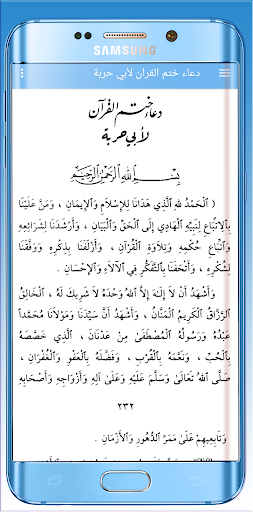 SAMSUNG
دعاء ختم القران لأبي حربة
دعاء ختم القرآن
لأبي حربة
بِسْمِ اللهِ الرَّحْمٰنِ الرَّحِيمِ
( اَلْحَمْدُ لِلهِ الَّذِي هَدَانَا لِلْإِسْلَامِ وَالْإِيمَانِ ، وَمَنَّ عَلَيْنَا
بِالِاتِّبَاعِ لِنَبِيِّهِ الْهَادِي إِلَى الْحَقِّ وَالْبَيَانِ ، وَأَرْشَدَنَا لِشَرَائِعِهِ
وَاتِّبَاعِ حُكْمِهِ وَتِلَاوَةِ الْقُرْآنِ ، وَأَزْلَفَنَا بِذِكْرِهِ وَوَفَّقَنَا
لِشُكْرِهِ ، وَأَتْحَفَنَا بِالتَّفَكُّرِ فِي الْآلَاءِ وَالْإِحْسَانِ .
وَأَشْهَدُ أَنْ لَا إِلٰهَ إِلَّا اللهُ وَحْدَهُ لَا شَرِيكَ لَهُ ، الْخَالِقُ
الرَّزَّاقُ الْكَرِيمُ الْمَنَّانُ ، وَأَشْهَدُ أَنَّ سَيِّدَنَا وَمَوْلَانَا مُحَمَّداً
عَبْدُهُ وَرَسُولُهُ الْمُصْطَفَىٰ مِنْ عَدْنَانَ ، الَّذِي خَصَّصَهُ
بِالْحُبِّ ، وَنَعَّمَهُ بِالْقُرْبِ ، وَفَضَّلَهُ بِالْعَفْوِ وَالْغُفْرَانِ ،
صَلَّى اللهُ تَعَالَىٰ وَسَلَّمَ عَلَيْهِ وَعَلَىٰ آلِهِ وَأَزْوَاجِهِ وَأَصْحَابِهِ
٢٣٢
وَتَابِعِيهِمْ عَلَىٰ مَمَرِّ الدُّهُورِ وَالْأَزْمَانِ .